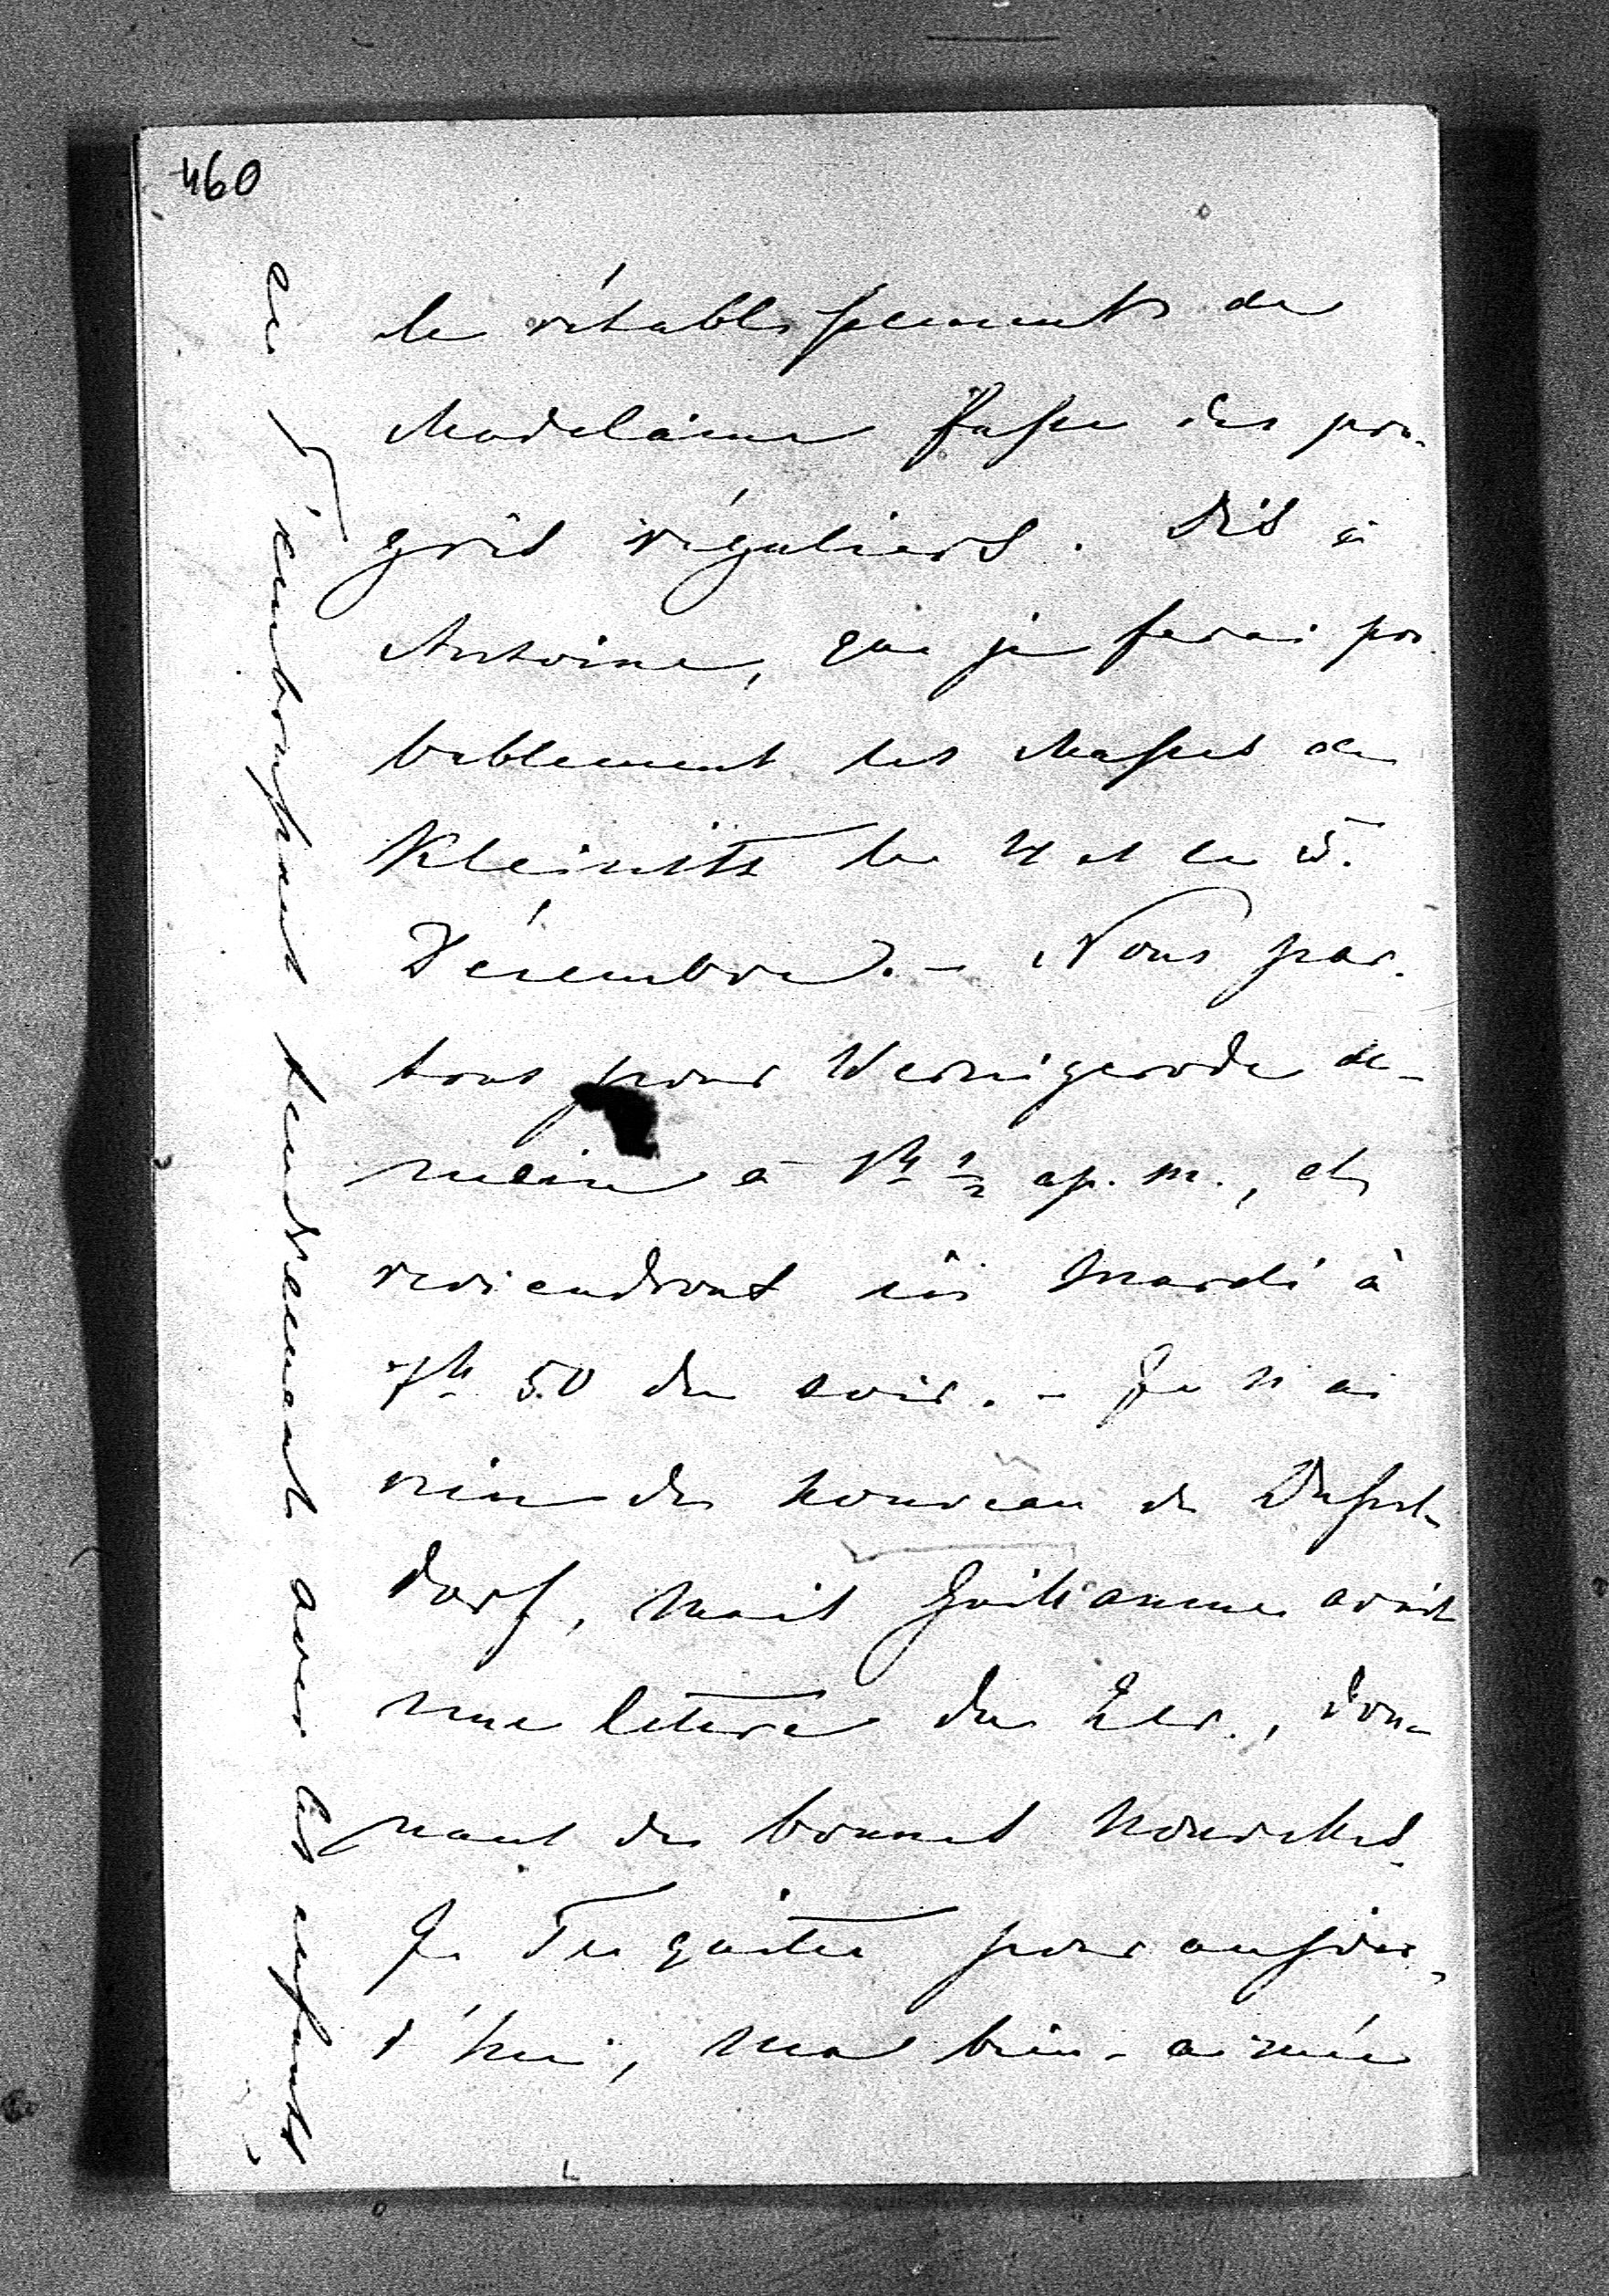 460
le rétablissement de
Madelaine fasse des pro-
grès réguliers. Dis à
Antoine, que je ferai pro
bablement les chasses de
Kleinitz le 4 et le 5.
Décembre. – Nous par-
tons pour Wernigerode de-
main à 1h ½ ap. m., et
reviendront ici Mardi à
7h 50 du soir. – Je n'ai
rien de nouveau de Dussel-
dorf, mais Guillaume avait
une lettre du 2er., don-
nant de bonnes nouvelles.
Je Te quitte pour aujour-
d'hui, ma bien-aimée
en T'embrassant tendrement avec les enfants,